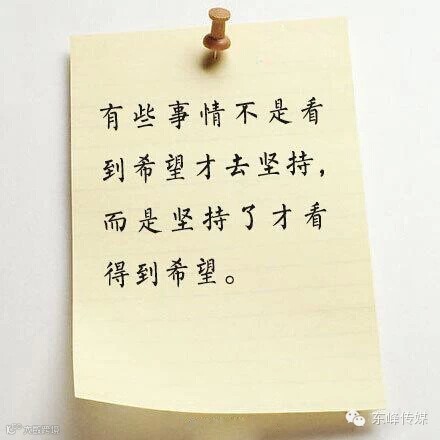 有些事情不是看
到希望才去坚持，
而是坚持了才看
得到希望。
东峰传媒